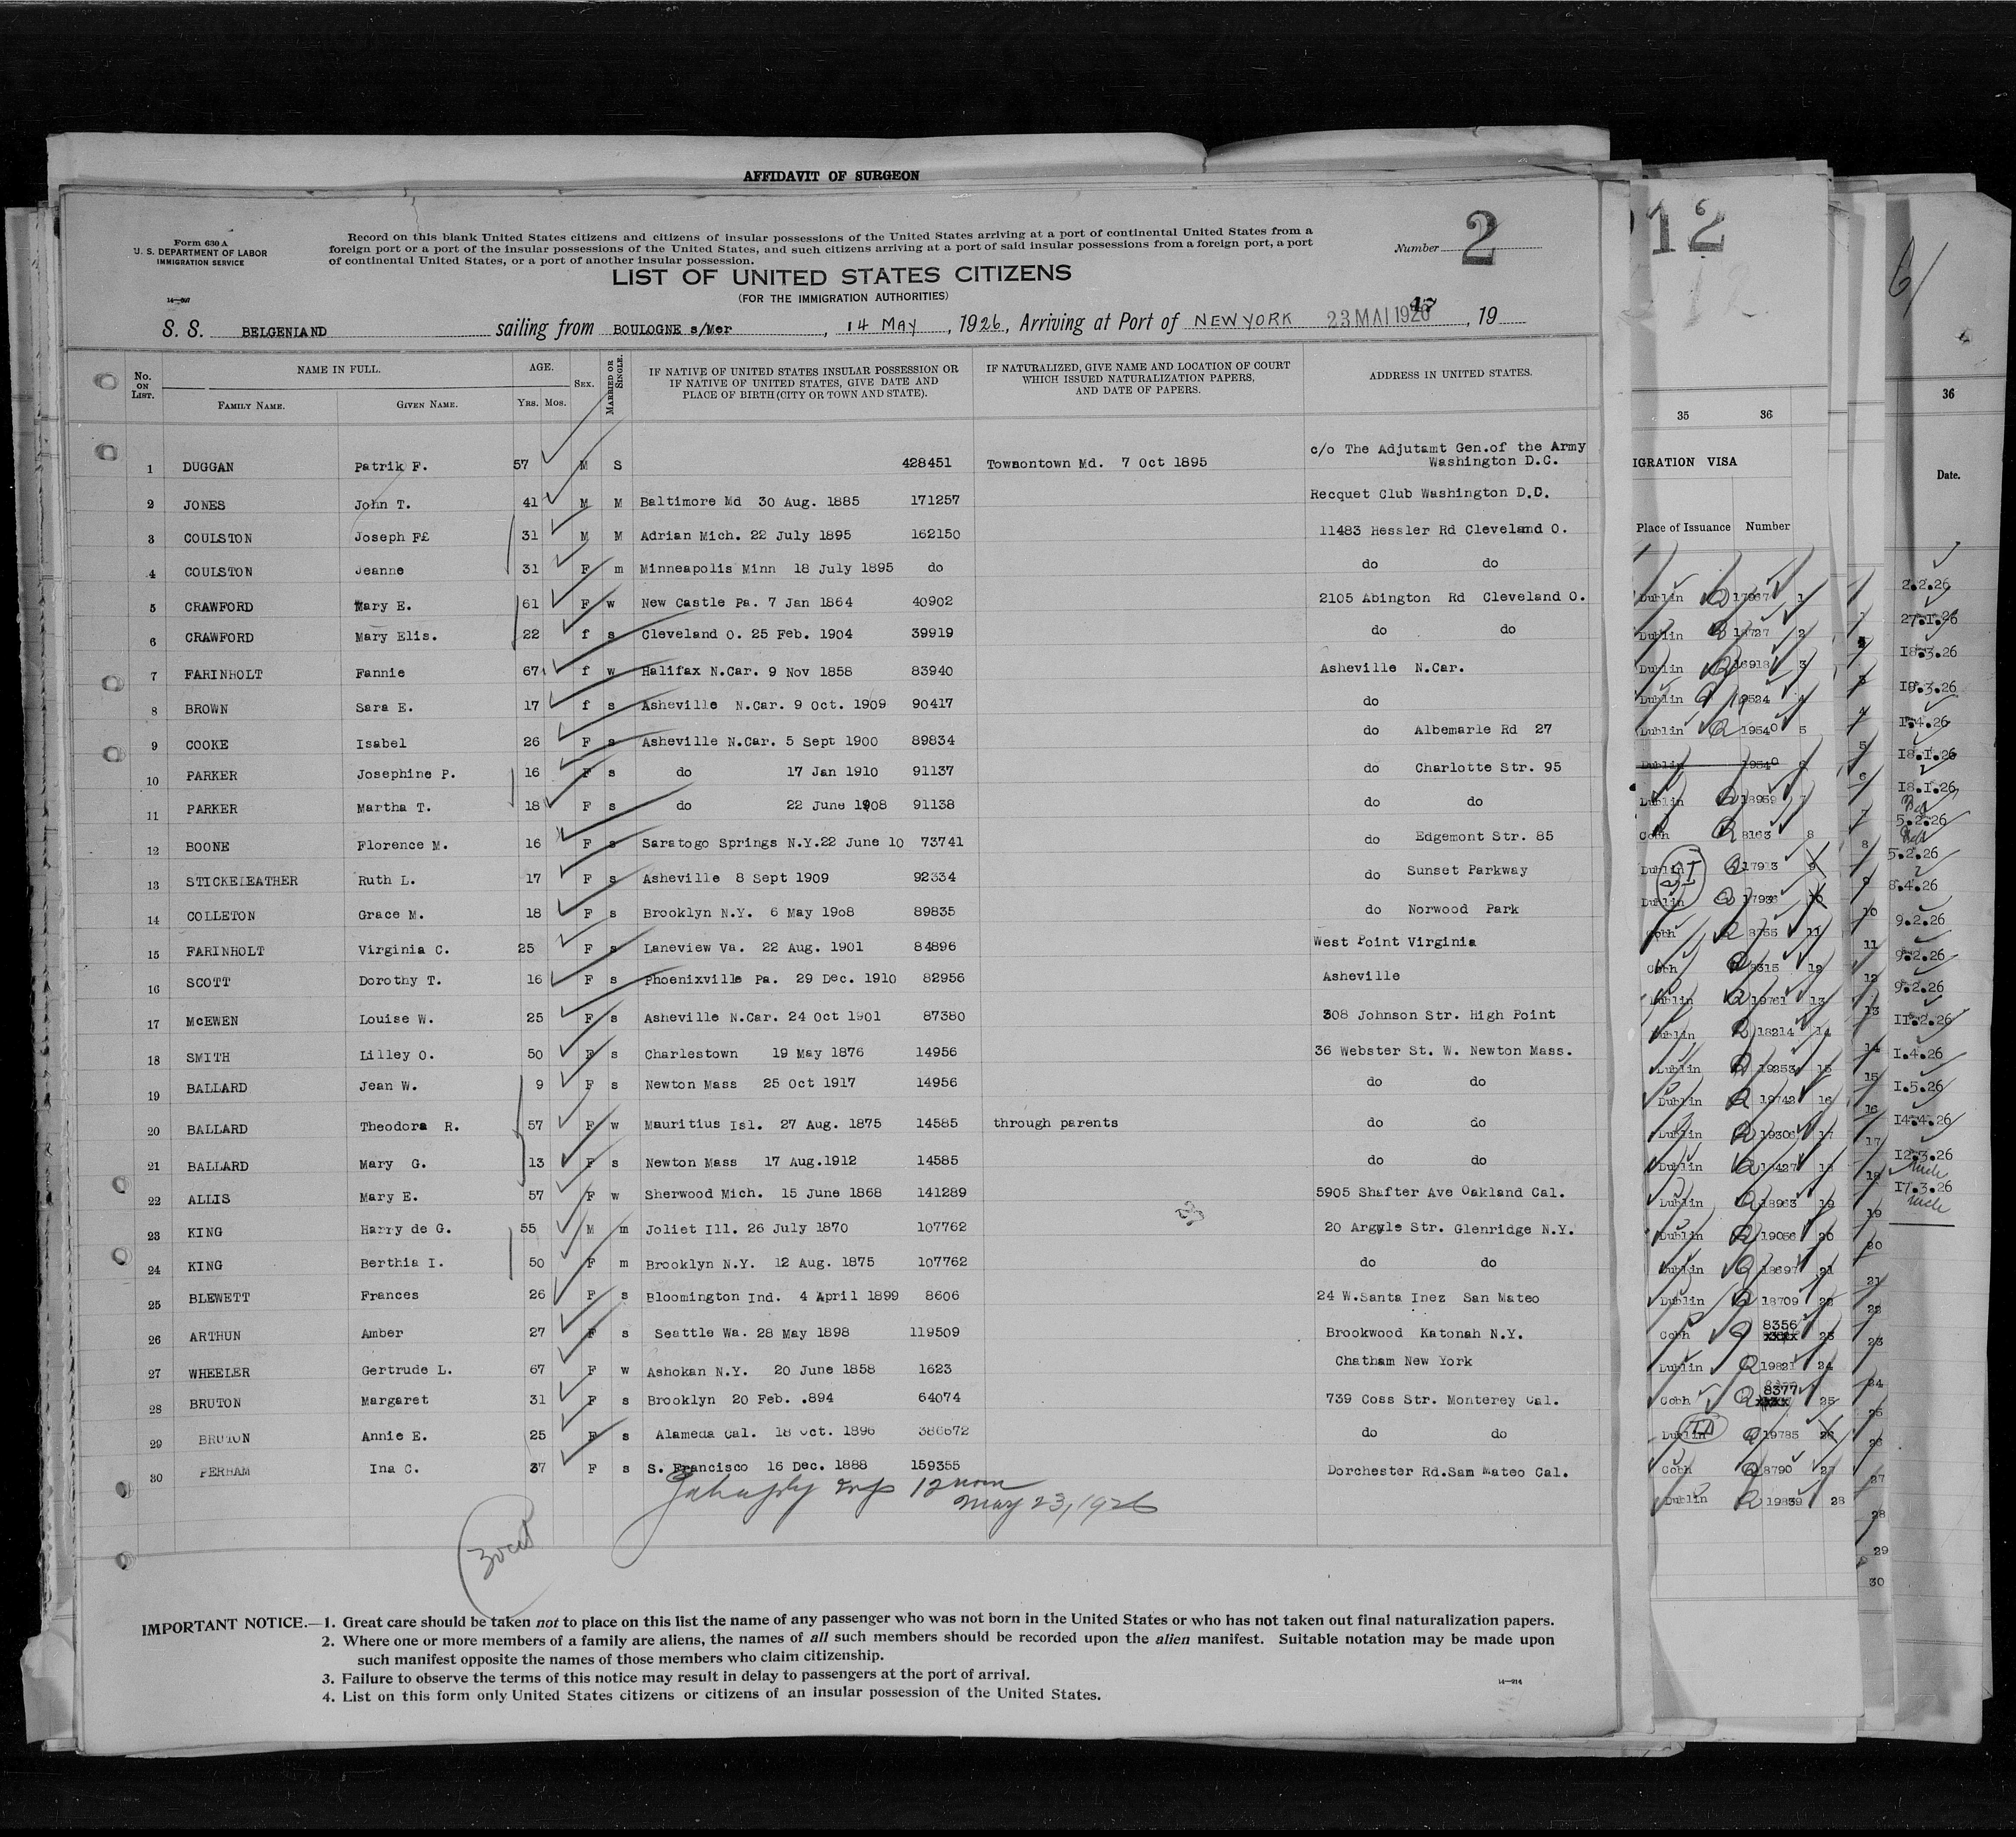 AFFIDAVIT OF SURGEON
Form 630 A
U. S. DEPARTMENT OF LABOR
IMMIGRATION SERVICE
Record on this blank United States citizens and citizens of insular possessions of the United States arriving at a port of continental United States from a
foreign port or a port of the insular possessions of the United States, and such citizens arriving at a port of said insular possessions from a foreign port, a port
of continental United States, or a port of another insular possession.
Number 2
LIST OF UNITED STATES CITIZENS
(FOR THE IMMIGRATION AUTHORITIES)
S. S. BELGENLAND sailing from BOULOGNE s/Mer, 14 MAY, 1926, Arriving at Port of NEW YORK 23 MAI 1926, 19
No. on List. NAME IN FULL. AGE. Sex. Married or Single. IF NATIVE OF UNITED STATES INSULAR POSSESSION OR IF NATIVE OF UNITED STATES, GIVE DATE AND PLACE OF BIRTH (CITY OR TOWN AND STATE). IF NATURALIZED, GIVE NAME AND LOCATION OF COURT WHICH ISSUED NATURALIZATION PAPERS, AND DATE OF PAPERS. ADDRESS IN UNITED STATES.
Family Name. Given Name. Yrs. Mos.
1 DUGGAN Patrik F. 57 M S 428451 Towaontown Md. 7 Oct 1895 c/o The Adjutamt Gen.of the Army
Washington D.C.
2 JONES John T. 41 M M Baltimore Md 30 Aug. 1885 171257 Recquet Club Washington D.C.
3 COULSTON Joseph F£ 31 M M Adrian Mich. 22 July 1895 162150 11483 Hessler Rd Cleveland O.
4 COULSTON Jeanne 31 F m Minneapolis Minn 18 July 1895 do do do
5 CRAWFORD Mary E. 61 F w New Castle Pa. 7 Jan 1864 40902 2105 Abington Rd Cleveland O.
6 CRAWFORD Mary Elis. 22 f s Cleveland O. 25 Feb. 1904 39919 do do
7 FARINHOLT Fannie 67 f w Halifax N.Car. 9 Nov 1858 83940 Asheville N.Car.
8 BROWN Sara E. 17 f s Asheville N.Car. 9 Oct. 1909 90417 do
9 COOKE Isabel 26 F s Asheville N.Car. 5 Sept 1900 89834 do Albemarle Rd 27
10 PARKER Josephine P. 16 F s do 17 Jan 1910 91137 do Charlotte Str. 95
11 PARKER Martha T. 18 F s do 22 June 1908 91138 do do
12 BOONE Florence M. 16 F s Saratogo Springs N.Y.22 June 10 73741 do Edgemont Str. 85
13 STICKELEATHER Ruth L. 17 F s Asheville 8 Sept 1909 92334 do Sunset Parkway
14 COLLETON Grace M. 18 F s Brooklyn N.Y. 6 May 1908 89835 do Norwood Park
15 FARINHOLT Virginia C. 25 F s Laneview Va. 22 Aug. 1901 84896 West Point Virginia
16 SCOTT Dorothy T. 16 F s Phoenixville Pa. 29 Dec. 1910 82956 Asheville
17 McEWEN Louise W. 25 F s Asheville N.Car. 24 Oct 1901 87380 308 Johnson Str. High Point
18 SMITH Lilley O. 50 F s Charlestown 19 May 1876 14956 36 Webster St. W. Newton Mass.
19 BALLARD Jean W. 9 F s Newton Mass 25 Oct 1917 14956 do do
20 BALLARD Theodora R. 57 F w Mauritius Isl. 27 Aug. 1875 14585 through parents do do
21 BALLARD Mary G. 13 F s Newton Mass 17 Aug.1912 14585 do do
22 ALLIS Mary E. 57 F w Sherwood Mich. 15 June 1868 141289 5905 Shafter Ave Oakland Cal.
23 KING Harry de G. 55 M m Joliet Ill. 26 July 1870 107762 20 Argyle Str. Glenridge N.Y.
24 KING Berthia I. 50 F m Brooklyn N.Y. 12 Aug. 1875 107762 do do
25 BLEWETT Frances 26 F s Bloomington Ind. 4 April 1899 8606 24 W.Santa Inez San Mateo
26 ARTHUN Amber 27 F s Seattle Wa. 28 May 1898 119509 Brookwood Katonah N.Y.
27 WHEELER Gertrude L. 67 F w Ashokan N.Y. 20 June 1858 1623 Chatham New York
28 BRUTON Margaret 31 F s Brooklyn 20 Feb. .894 64074 739 Coss Str. Monterey Cal.
29 BRUTON Annie E. 25 F s Alameda Cal. 18 Oct. 1896 386672 do do
30 PERHAM Ina C. 37 F s S. Francisco 16 Dec. 1888 159355 Dorchester Rd.San Mateo Cal.
May 23, 1926
IMPORTANT NOTICE.—1. Great care should be taken not to place on this list the name of any passenger who was not born in the United States or who has not taken out final naturalization papers.
2. Where one or more members of a family are aliens, the names of all such members should be recorded upon the alien manifest. Suitable notation may be made upon
such manifest opposite the names of those members who claim citizenship.
3. Failure to observe the terms of this notice may result in delay to passengers at the port of arrival.
4. List on this form only United States citizens or citizens of an insular possession of the United States.
14—914
12
35 36
IGRATION VISA
Place of Issuance Number
Dublin 17967 1
Dublin 18727 2
Dublin 16918 3
Dublin 19524 4
Dublin 19540 5
Dublin 19540 6
Dublin 18959 7
Cobh 8163 8
Dublin 17913 9
Dublin 17936 10
Cobh 8755 11
Cobh 8315 12
Dublin 19761 13
Dublin 18214 14
Dublin 19253 15
Dublin 19742 16
Dublin 19306 17
Dublin 18427 18
Dublin 18963 19
Dublin 19056 20
Dublin 18697 21
Dublin 18709 22
Cobh 8356 23
Dublin 19821 24
Cobh 8377 25
Dublin 19785 26
Cobh 8790 27
Dublin 19839 28
36
Date.
2.2.26
27.1.26
18.3.26
18.3.26
1.4.26
18.1.26
18.1.26
5.2.26
5.2.26
8.4.26
9.2.26
9.2.26
9.2.26
11.2.26
1.4.26
1.5.26
14.4.26
12.3.26
17.3.26